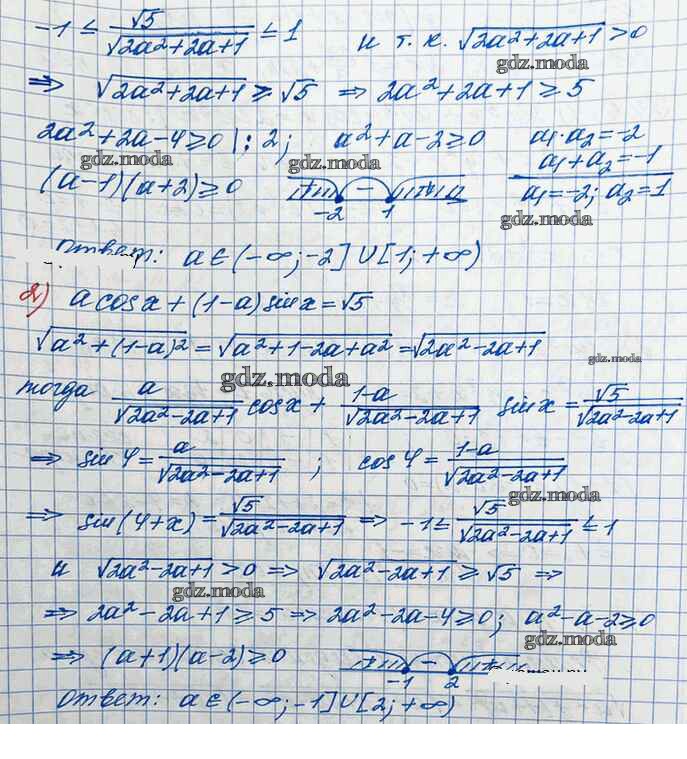 -1 ≤ √5/√(2a²+2a+1) ≤ 1 и т.к. √(2a²+2a+1) > 0
gdz.moda
⇒ √(2a²+2a+1) ≥ √5 ⇒ 2a²+2a+1 ≥ 5
2a²+2a-4≥0 |:2; a²+a-2≥0 a₁·a₂=-2
gdz.moda gdz.moda a₁+a₂=-1
(a-1)(a+2)≥0 -2 - 1 a₁=-2; a₂=1
gdz.moda
Ответ: a∈(-∞;-2]∪[1;+∞)
2) a cos x + (1-a) sin x = √5
√(a²+(1-a)²) = √(a²+1-2a+a²) = √(2a²-2a+1)
gdz.moda gdz.moda
тогда a/√(2a²-2a+1) cos x + (1-a)/√(2a²-2a+1) sin x = √5/√(2a²-2a+1)
⇒ sin φ = a/√(2a²-2a+1) ; cos φ = (1-a)/√(2a²-2a+1)
gdz.moda
⇒ sin(φ+x) = √5/√(2a²-2a+1) ⇒ -1 ≤ √5/√(2a²-2a+1) ≤ 1
и √(2a²-2a+1) > 0 ⇒ √(2a²-2a+1) ≥ √5 ⇒
gdz.moda
⇒ 2a²-2a+1 ≥ 5 ⇒ 2a²-2a-4≥0; a²-a-2≥0
gdz.moda
⇒ (a+1)(a-2)≥0 -1 - 2
Ответ: a∈(-∞;-1]∪[2;+∞)
gdz.moda